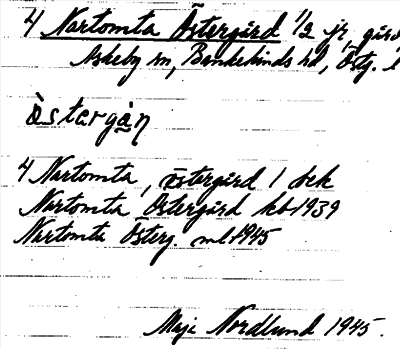 4 Nartomta Östergård 1/2 jr, gård
Askeby sn, Bankekinds hd, Östg. l
òstargàn
4 Nartomta, östergård 1 bek
Nartomta Östergård kb 1939
Nartomta Österg. ml 1945
Maja Nordlund 1945.